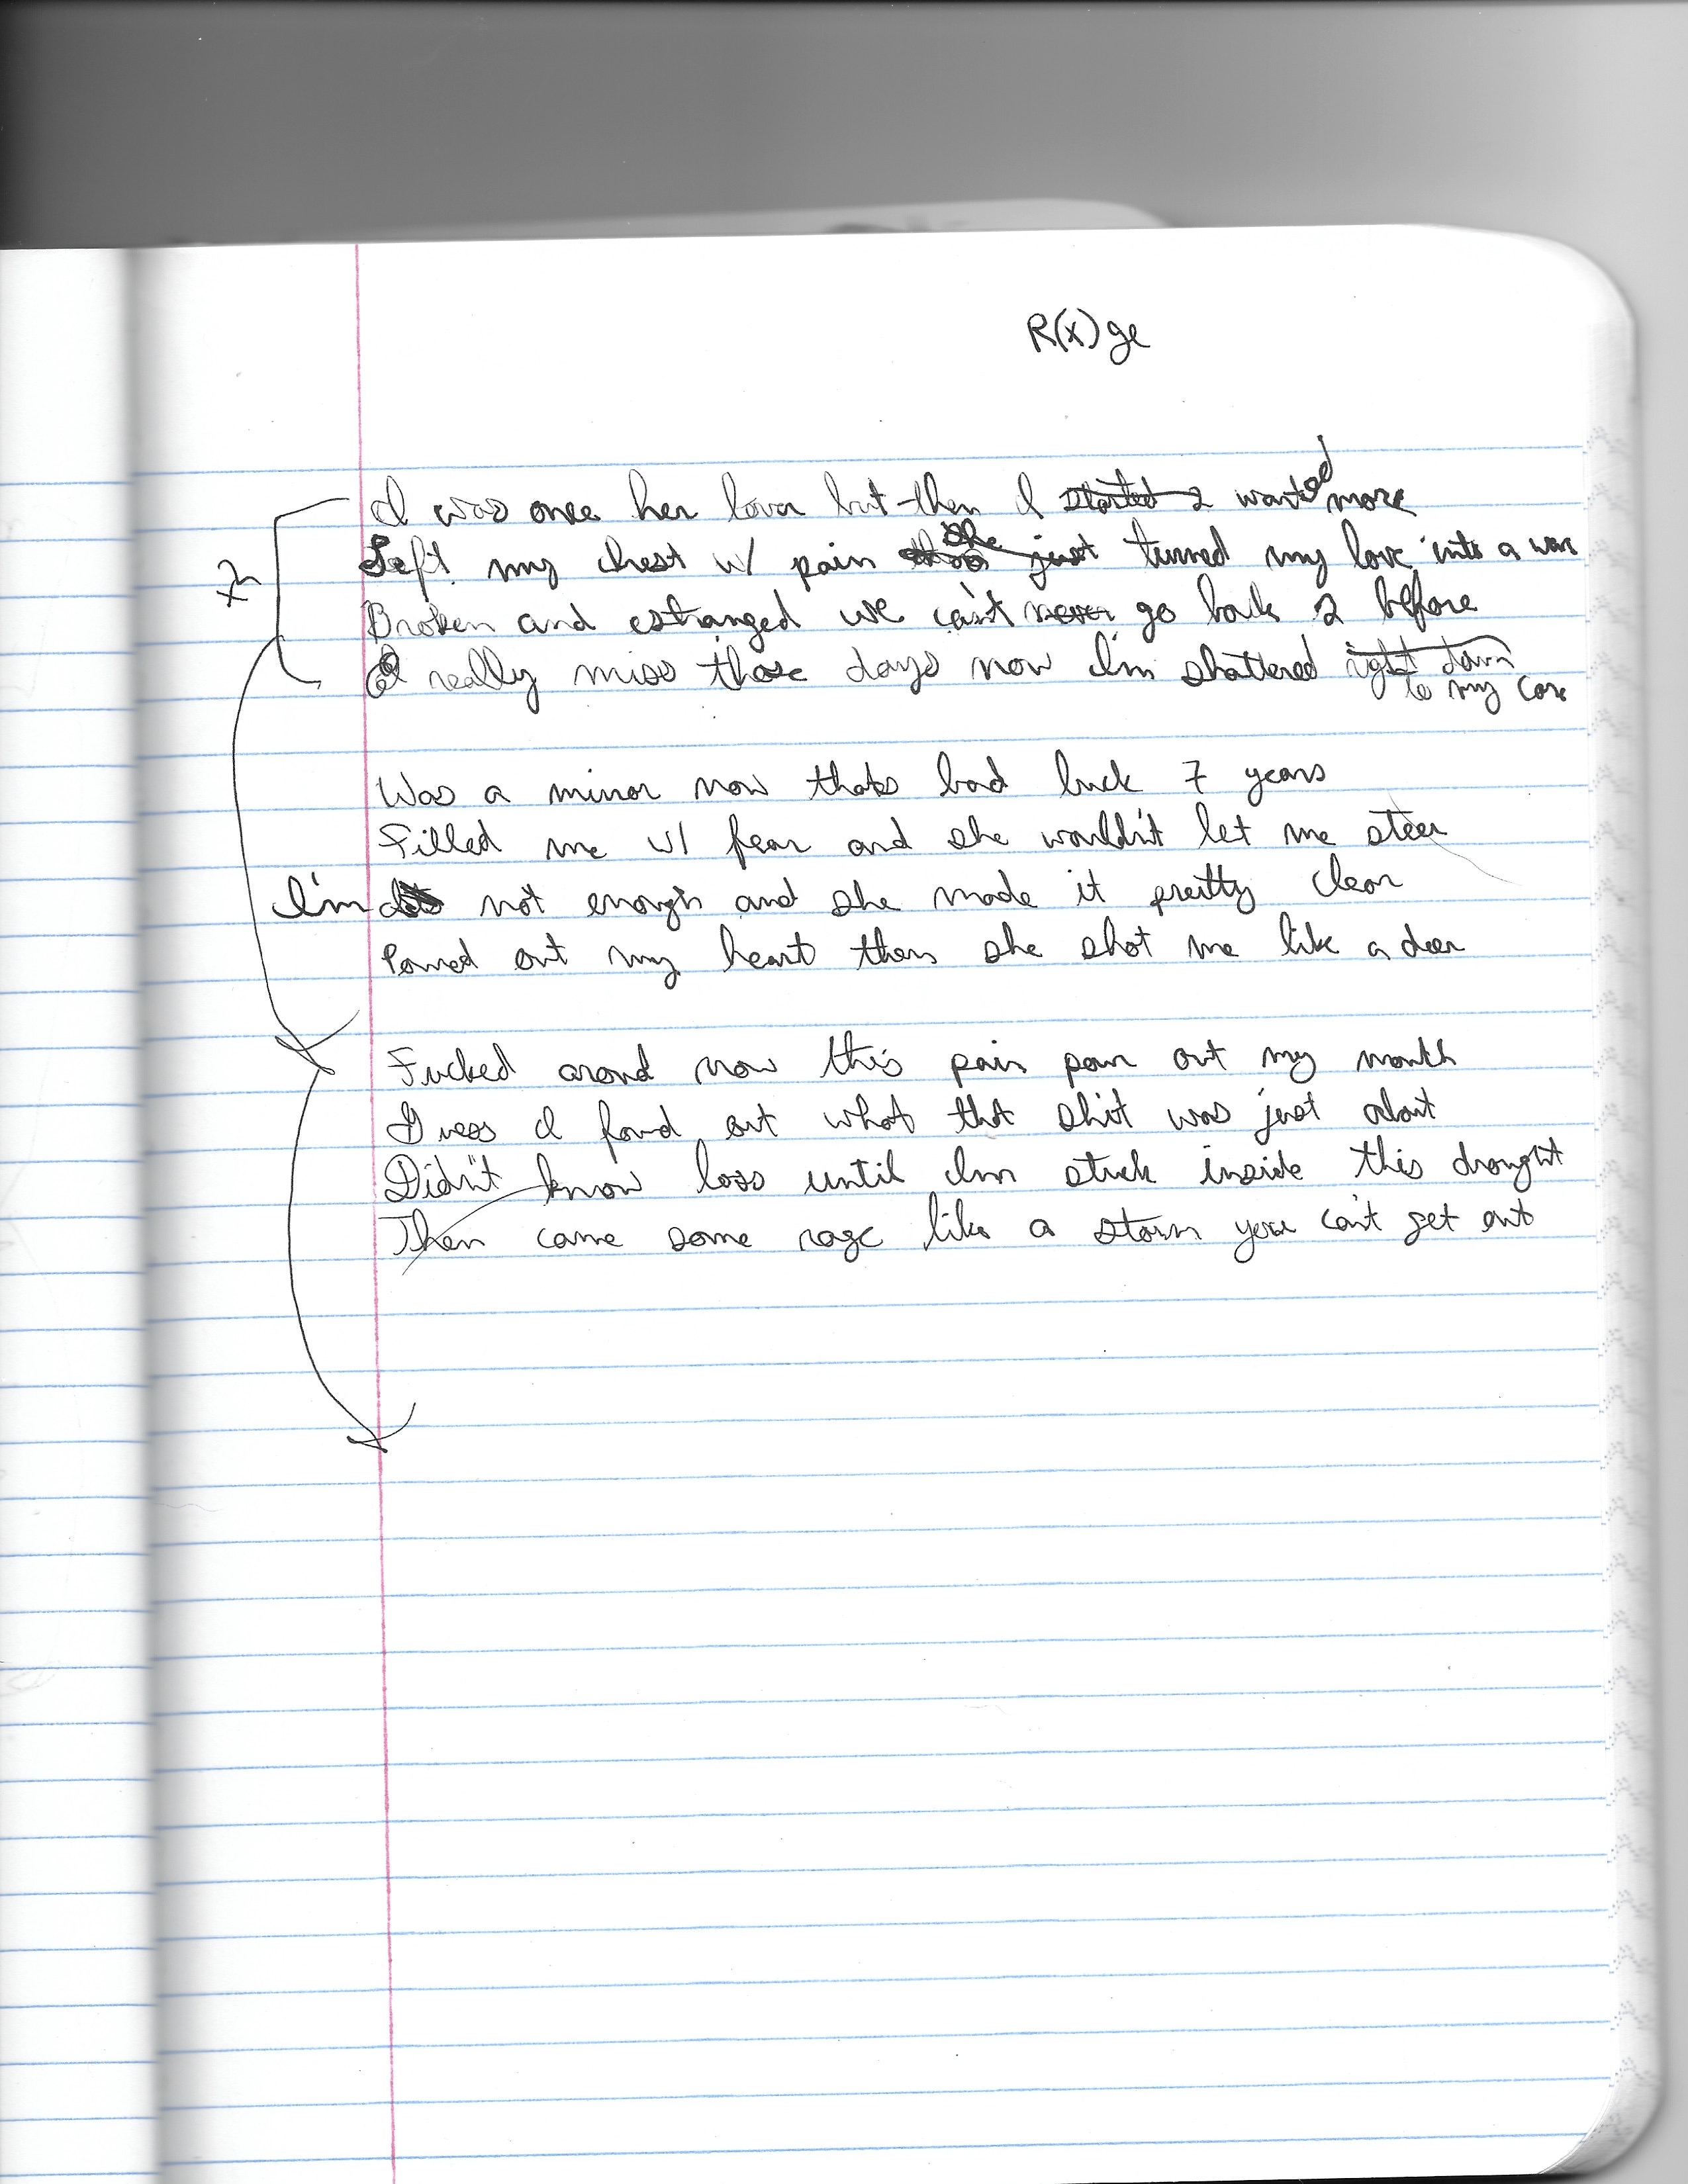 R(x)ge
I was once her lover but then I started 2 wanted more
Left my chest w/ pain she just turned my love into a war
x2
Broken and estranged we can't never go back 2 before
I really miss those days now I'm shattered right down
to my core
Was a mirror now thats bad luck 7 years
Filled me w/ fear and she wouldn't let me steer
I'm not enough and she made it pretty clear
Poured out my heart then she shot me like a deer
Fucked around now this pain pour out my mouth
Guess I found out what that shit was just about
Didn't know loss until I'm stuck inside this drought
Then came some rage like a storm you can't get out